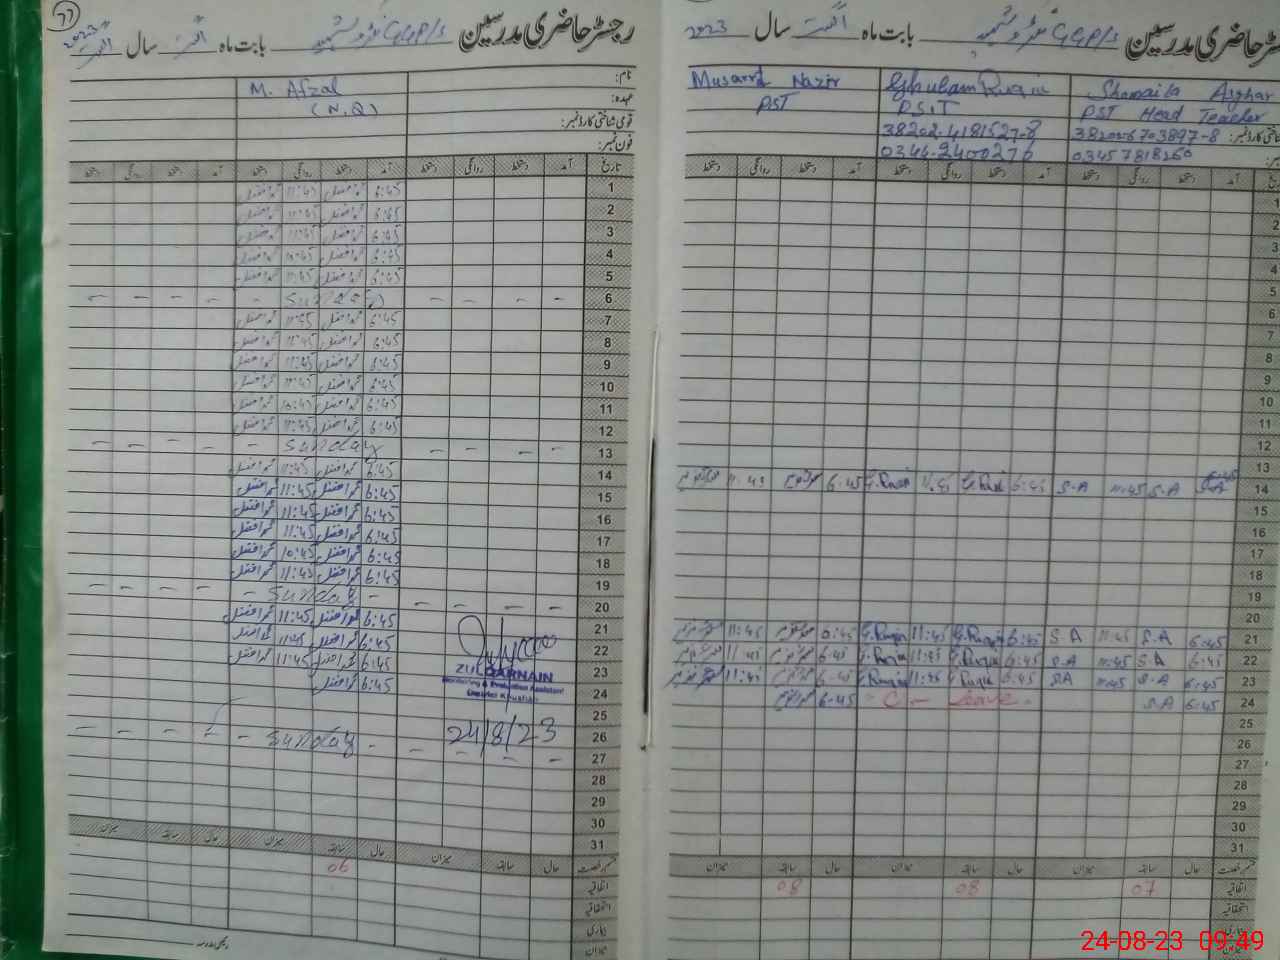 77
رجسٹر حاضری مدرسین GGP/S بابت ماہ اگست سال 2023
نام:
M. Afzal
عہدہ:
(N.Q)
قومی شناختی کارڈ نمبر:
فون نمبر:
تاریخ آمد دستخط روانگی دستخط آمد دستخط روانگی دستخط آمد دستخط روانگی دستخط
1 6:45 محمد افضل 11:45 محمد افضل
2 6:45 محمد افضل 11:45 محمد افضل
3 6:45 محمد افضل 11:45 محمد افضل
4 6:45 محمد افضل محمد افضل
5 6:45 محمد افضل 11:45 محمد افضل
6 - - - - Sunday - - - - -
7 6:45 محمد افضل 11:45 محمد افضل
8 6:45 محمد افضل 11:45 محمد افضل
9 6:45 محمد افضل 11:45 محمد افضل
10 6:45 محمد افضل 11:45 محمد افضل
11 6:45 محمد افضل 10:45 محمد افضل
12 6:45 محمد افضل 11:45 محمد افضل
13 - - - - Sunday - - - - -
14 6:45 محمد افضل 11:45 محمد افضل
15 6:45 محمد افضل 11:45 محمد افضل
16 6:45 محمد افضل 11:45 محمد افضل
17 6:45 محمد افضل 11:45 محمد افضل
18 6:45 محمد افضل 10:45 محمد افضل
19 6:45 محمد افضل 11:45 محمد افضل
20 - - - - Sunday - - - - -
21 6:45 محمد افضل 11:45 محمد افضل
22 6:45 محمد افضل 11:45 محمد افضل
23 6:45 محمد افضل 11:45 محمد افضل
24 6:45 محمد افضل
25
26
27 - - - - Sunday - - - - -
28
29
30
31
ZULQARNAIN
Monitoring & Evaluation Assistant
District Khushab
24/8/23
حال سابقہ میزان حال سابقہ میزان حال سابقہ میزان
06
اتفاقیہ
استحقاقیہ
بیماری
میزان
رجسٹر حاضری مدرسین GGP/S بابت ماہ اگست سال 2023
Musarrat Nazir
PST
Ghulam Ruqia
P.S.T
38202-4181527-8
0346-2400276
Shomaila Asghar
PST Head Teacher
382026703897-8
03457818260
آمد دستخط روانگی دستخط آمد دستخط روانگی دستخط آمد دستخط روانگی دستخط
1
2
3
4
5
6
7
8
9
10
11
12
13
14 6:45 S.A 11:45 S.A 6:45 G.Ruqia 11:45 G.Ruqia 6:45 11:45
15
16
17
18
19
20
21 6:45 S.A 11:45 S.A 6:45 G.Ruqia 11:45 G.Ruqia 6:45 11:45
22 6:45 S.A 11:45 S.A 6:45 G.Ruqia 11:45 G.Ruqia 6:45 11:45
23 6:45 S.A 11:45 S.A 6:45 G.Ruqia 11:45 G.Ruqia 6:45 11:45
24 6:45 S.A - C - leave - 6:45
25
26
27
28
29
30
31
حال سابقہ میزان حال سابقہ میزان حال سابقہ میزان
اتفاقیہ 07 08 08
استحقاقیہ
بیماری
میزان
24-08-23 09:49